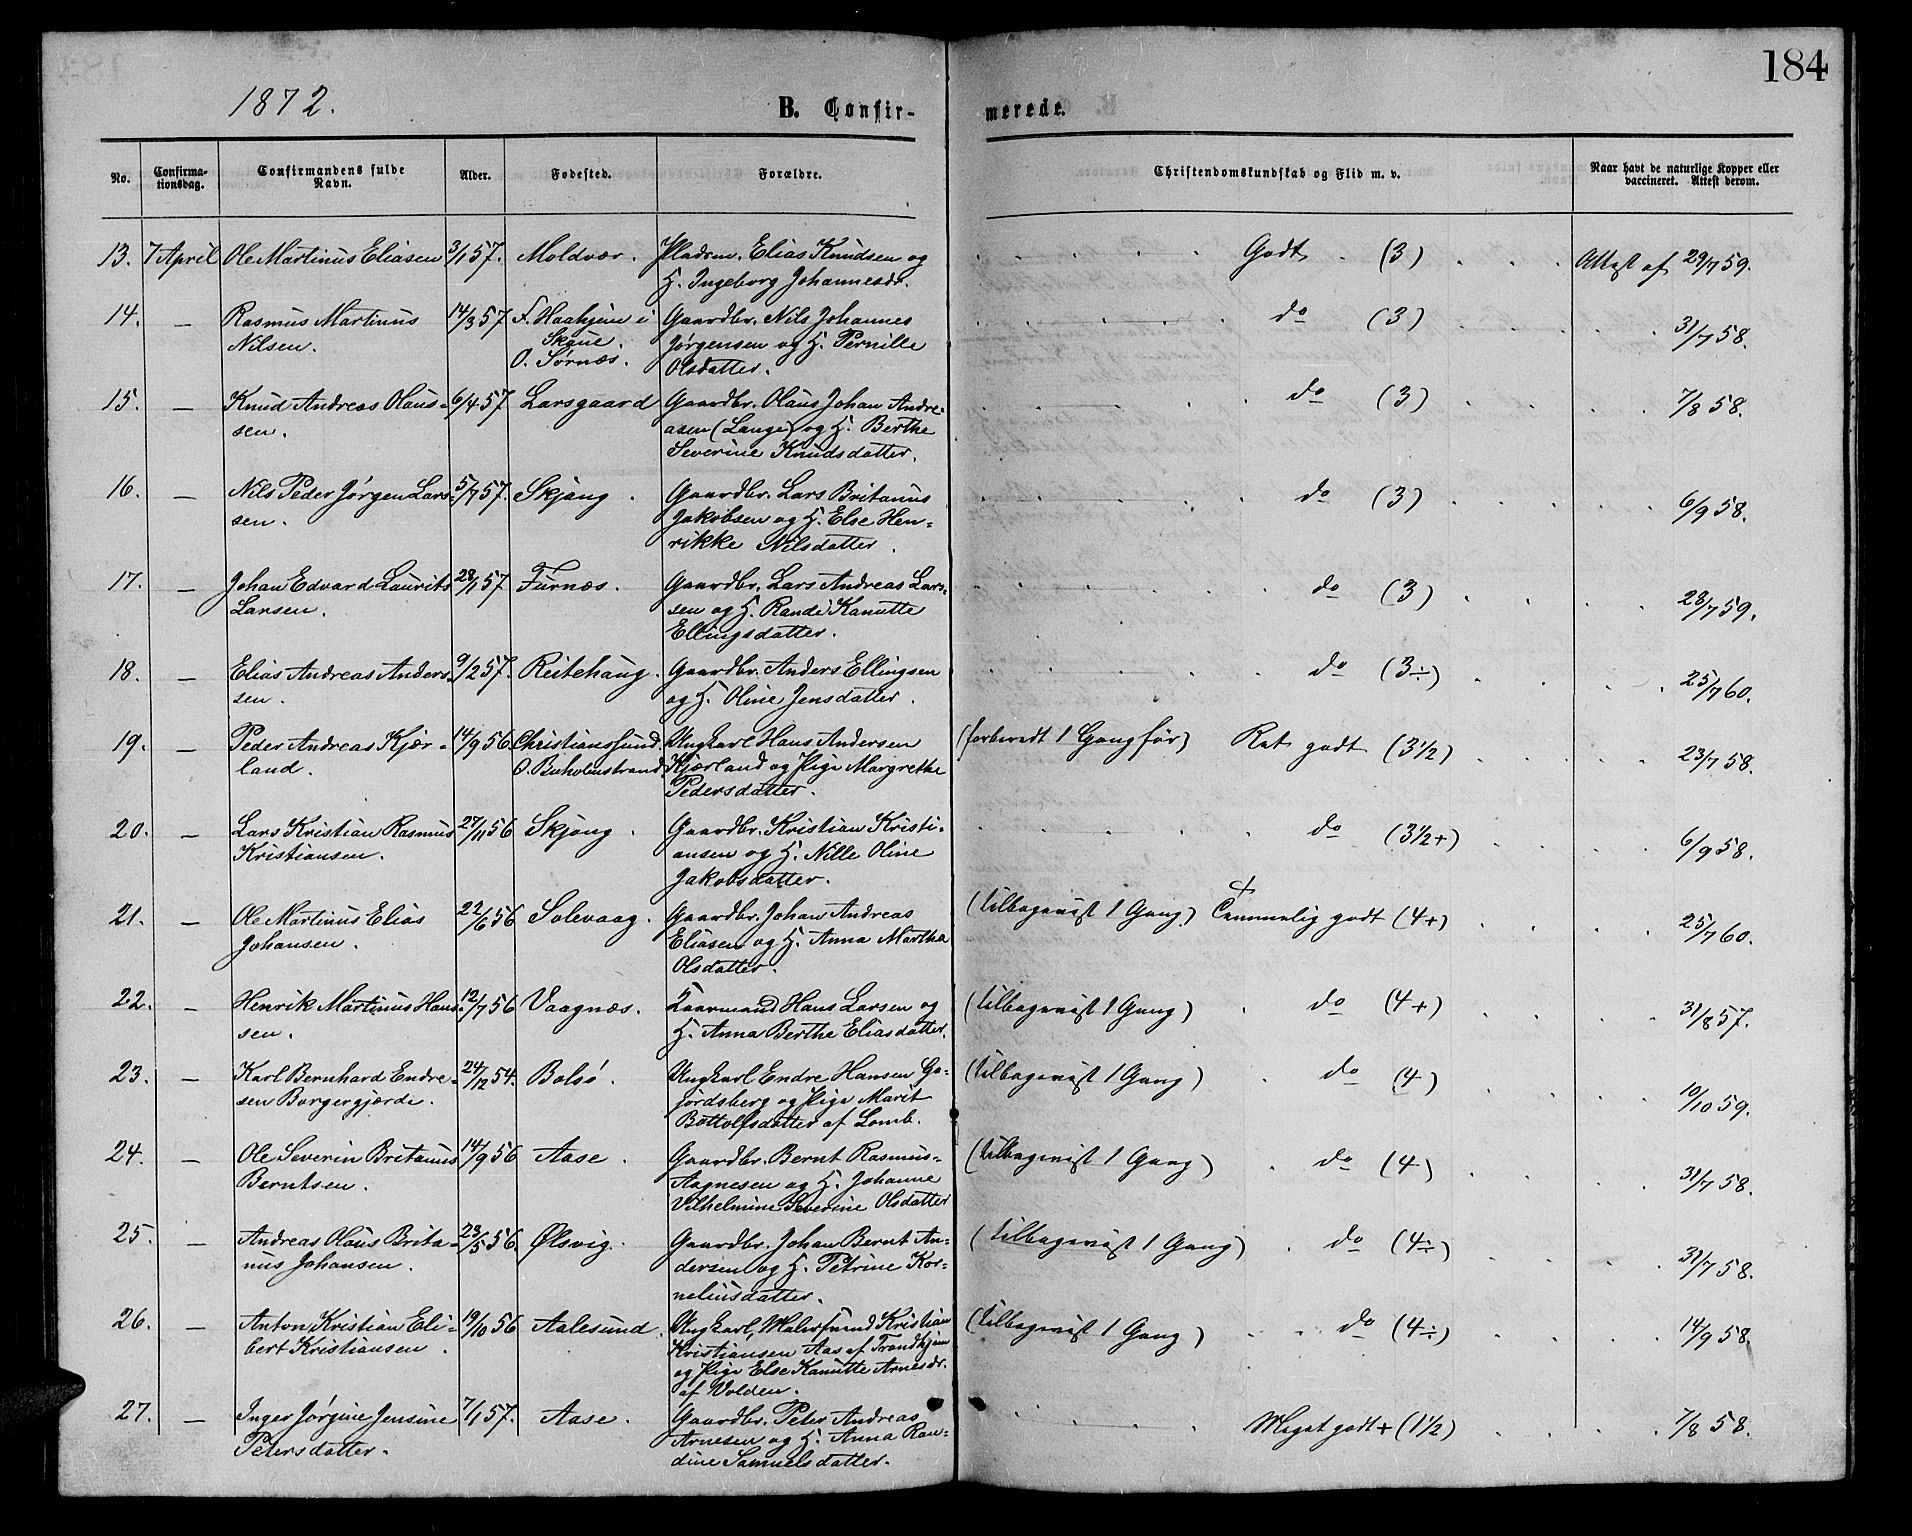 184
1872.
B. Confirmerede.
No. Confirmationsdag. Confirmandens fulde Navn. Alder. Fødested. Forældre. Christendomskundskab og Flid m. v. Naar havt de naturlige Kopper eller vaccineret. Attest derom.
13. 7 April Ole Martinus Eliasen 3/1 57. Moldvær. Pladsm. Elias Knudsen og Godt (3) Attest af 29/7 59.
H. Ingeborg Johannesdr.
14. — Rasmus Martinus 14/3 57 F. Haahjem i Gaardbr. Nils Johannes do (3) 31/7 58.
Nilsen. Skoue. Jørgensen og H. Pernille
O. Sørnæs. Olsdatter.
15. — Knud Andreas Olaus- 6/4 57 Larsgaard Gaardbr. Olaus Johan Andre- do (3) 7/8 58.
sen. asen (Lange) og H. Berthe
Severine Knudsdatter.
16. — Nils Peder Jørgen Lars- 5/7 57. Skjong. Gaardbr. Lars Britanus do (3) 6/9 58.
sen. Jakobsen og H. Else Hen-
rikke Nilsdatter.
17. — Johan Edvard Laurits 28/1 57 Furnæs. Gaardbr. Lars Andreas Lars- do (3) 28/7 59.
Larsen. sen og H. Randi Kanutte
Ellingsdatter.
18. — Elias Andreas Anders- 9/2 57. Reitehaug. Gaardbr. Anders Ellingsen do (3÷) 25/7 60.
sen. og H. Oline Jensdatter.
19. — Peder Andreas Kjær- 14/9 56. Christianssund. Ungkarl Hans Andersen (forberedt 1 Gang før) Ret godt (3½) 23/7 58.
land. O. Buholmstrand. Kjærland og Pige Margrethe
Pedersdatter.
20. — Lars Kristian Rasmus 27/11 56 Skjong. Gaardbr. Kristian Kristi- do (3½+) 6/9 58.
Kristiansen. ansen og H. Nille Oline
Jakobsdatter.
21. — Ole Martinus Elias 22/6 56 Solevaag. Gaardbr. Johan Andreas (tilbagevist 1 Gang) Temmelig godt (4+) 25/7 60.
Johansen. Eliasen og H. Anna Martha
Olsdatter.
22. — Henrik Martinus Hans- 12/7 56 Vaagnæs. Kaarmand Hans Larsen og (tilbagevist 1 Gang) do (4+) 31/8 57.
sen. H. Anna Berthe Eliasdatter.
23. — Karl Bernhard Endre- 24/12 54. Bolsø. Ungkarl Endre Hansen Gjo- (tilbagevist 1 Gang) do (4) 10/10 59.
sen Borgergjærde. jørdsberg og Pige Marit
Bottolfsdatter af Lomb.
24. — Ole Severin Britanus 14/9 56 Aase. Gaardbr. Bernt Rasmus- (tilbagevist 1 Gang) do (4) 31/7 58.
Berntsen. Aagnesen og H. Johanne
Vilhelmine Severine Olsdatter
25. — Andreas Olaus Brita- 23/5 56. Ølsvig. Gaardbr. Johan Bernt An- (tilbagevist 1 Gang) do (4÷) 31/7 58.
nus Johansen. dersen og H. Petrine Kor-
neliusdatter.
26. — Anton Kristian Eli- 19/10 56 Aalesund. Ungkarl, Malersvend Kristian (tilbagevist 1 Gang) do (4÷) 14/9 58.
bert Kristiansen. Kristiansen Aas af Trondhjem
og Pige Else Kanutte Arnesdr.
af Volden.
27. — Inger Jørgine Jensine 7/1 57. Aase. Gaardbr. Peter Andreas Meget godt + (1½) 7/8 58.
Petersdatter. Arnesen og H. Anna Ran-
dine Samuelsdatter.